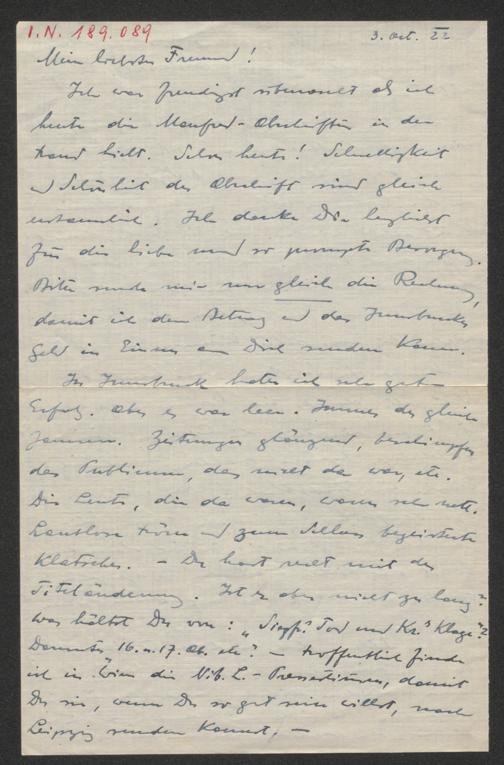 I.N. 189.089
3. Oct. 22
Mein liebster Freund!
Ich war freudigst überrascht als ich
heute die Manfred-Abschriften in der
Hand hielt. Schon heute! Schnelligkeit
und Schönheit der Abschrift sind gleich
erstaunlich. Ich danke Dir herzlichst
für die liebe und so prompte Besorgung.
Bitte sende mir nur gleich die Rechnung,
damit ich den Betrag und das Innsbrucker
Geld in Einem an Dich senden kann.
In Innsbruck hatte ich sehr guten
Erfolg. Aber es war leer. Immer der gleiche
Jammer. Zeitungen glänzend, beschimpfen
das Publicum, das nicht da war, etc.
Die Leute, die da waren, waren sehr nett.
Lautlose Hören und zum Schluss begeistertes
Klatschen. – Du hast recht mit der
Titeländerung. Ist er aber nicht zu lang?
Was hältst Du von: „Siegfr.s Tod und Kr.s Klage"?
Darunter 16. u. 17. Ab. etc? – Hoffentlich finde
ich in Wien die Nib. L.- damit
Du sie, wenn Du so gut sein willst, nach
Leipzig senden kannst. –